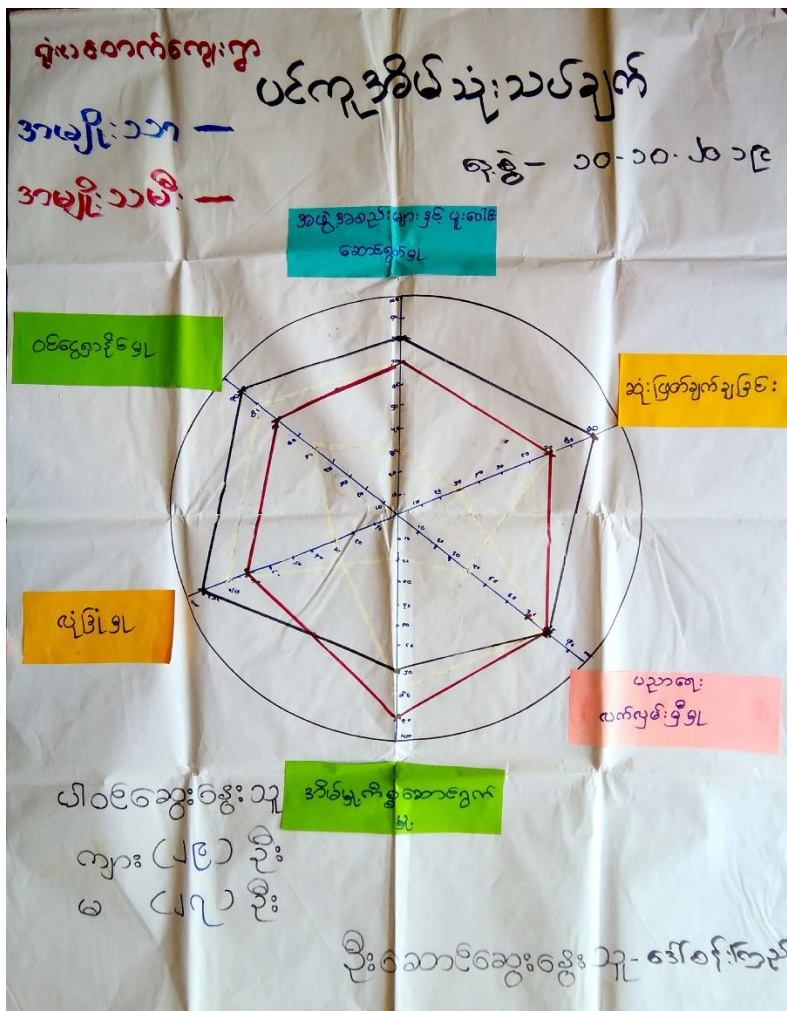 ရုံးပင်တောက်ကျေးရွာ
ပင့်ကူအိမ်သုံးသပ်ချက်
အမျိုးသား –
ရက်စွဲ – ၁၀-၁၀-၂၀၁၉
အမျိုးသမီး –
အဖွဲ့အစည်းများနှင့် ပူးပေါင်း
ဆောင်ရွက်မှု
ဝင်ငွေရှာနိုင်မှု
ဆုံးဖြတ်ချက်ချခြင်း
လုံခြုံမှု
ပညာရေး
လက်လှမ်းမှီမှု
အိမ်မှုကိစ္စဆောင်ရွက်
မှု
ပါဝင်ဆွေးနွေးသူ
ကျား (၂၉) ဦး
မ (၂၇) ဦး
ဦးဆောင်ဆွေးနွေးသူ-ဒေါ်စန်းကြည်